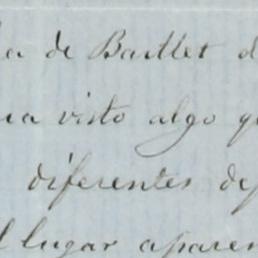 la de Bartlet d
ha visto algo q
diferentes de
l lugar aparen